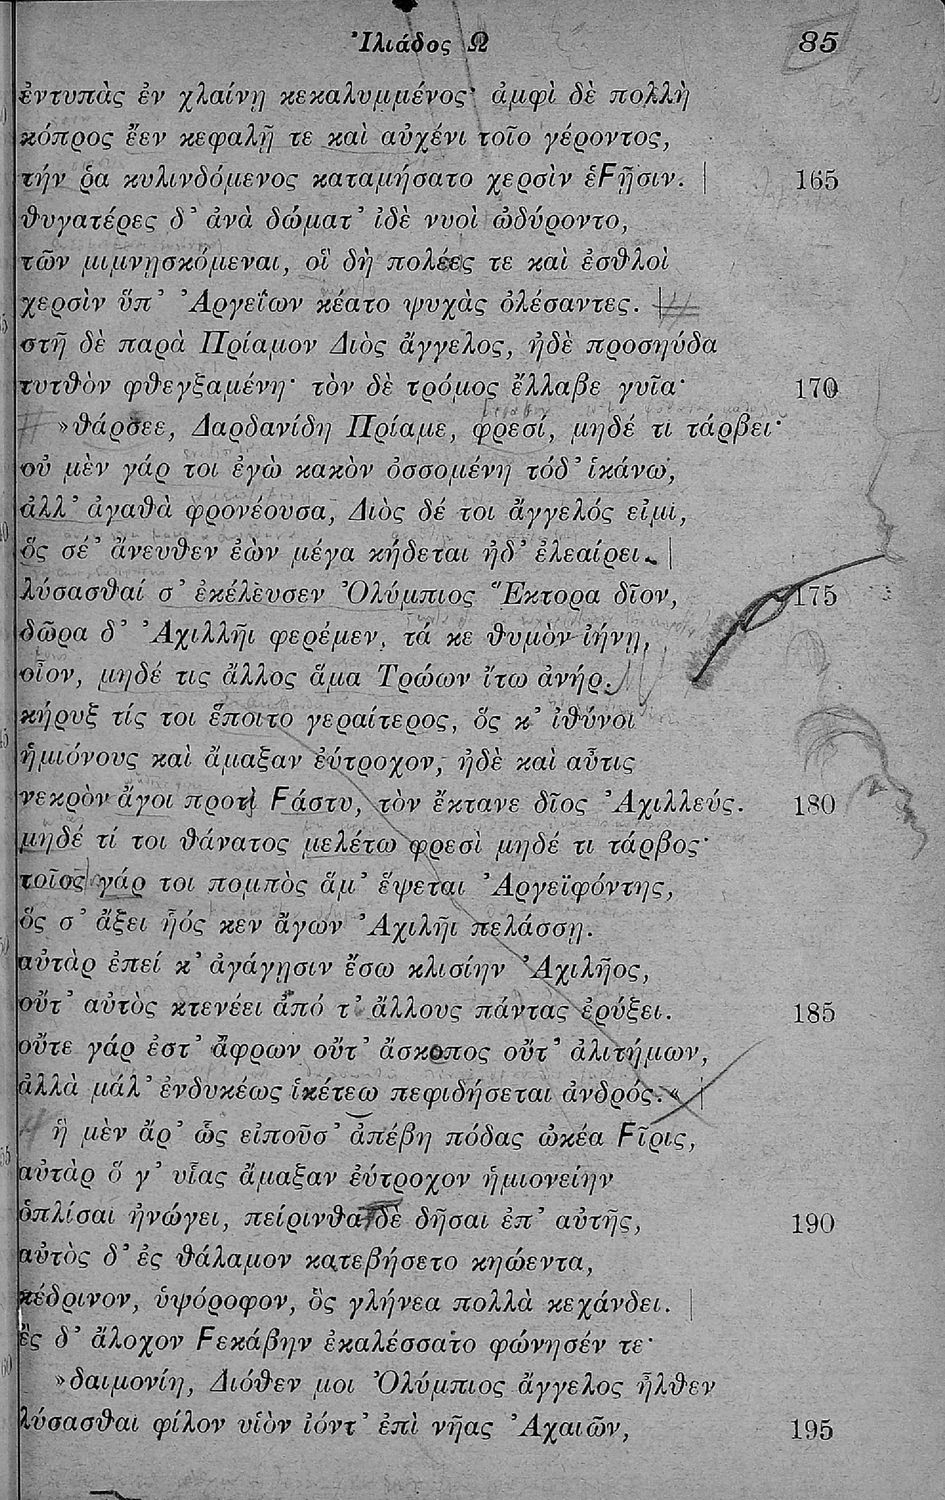 Ἰλιάδος Ω 85
ἐντυπὰς ἐν χλαίνῃ κεκαλυμμένος· ἀμφὶ δὲ πολλὴ
κόπρος ἔεν κεφαλῇ τε καὶ αὐχένι τοῖο γέροντος,
τήν ῥα κυλινδόμενος καταμήσατο χερσὶν ἑϜῇσιν. 165
θυγατέρες δ’ ἀνὰ δώματ’ ἰδὲ νυοὶ ὠδύροντο,
τῶν μιμνησκόμεναι, οἳ δὴ πολέες τε καὶ ἐσθλοὶ
χερσὶν ὕπ’ Ἀργεΐων κέατο ψυχὰς ὀλέσαντες.
στῆ δὲ παρὰ Πρίαμον Διὸς ἄγγελος, ἠδὲ προσηύδα
τυτθὸν φθεγξαμένη· τὸν δὲ τρόμος ἔλλαβε γυῖα· 170
»θάρσεε, Δαρδανίδη Πρίαμε, φρεσί, μηδέ τι τάρβει·
οὐ μὲν γάρ τοι ἐγὼ κακὸν ὀσσομένη τόδ’ ἱκάνω,
ἀλλ’ ἀγαθὰ φρονέουσα, Διὸς δέ τοι ἄγγελός εἰμι,
ὅς σέ’ ἄνευθεν ἐὼν μέγα κήδεται ἠδ’ ἐλεαίρει.
λύσασθαί σ’ ἐκέλευσεν Ὀλύμπιος Ἕκτορα δῖον, 175
δῶρα δ’ Ἀχιλλῆι φερέμεν, τά κε θυμὸν ἰήνῃ,
οἶον, μηδέ τις ἄλλος ἅμα Τρώων ἴτω ἀνήρ.
κήρυξ τίς τοι ἕποιτο γεραίτερος, ὅς κ’ ἰθύνοι
ἡμιόνους καὶ ἄμαξαν ἐύτροχον, ἠδὲ καὶ αὖτις
νεκρὸν ἄγοι προτὶ Ϝάστυ, τὸν ἔκτανε δῖος Ἀχιλλεύς. 180
μηδέ τί τοι θάνατος μελέτω φρεσὶ μηδέ τι τάρβος·
τοῖος γάρ τοι πομπὸς ἅμ’ ἕψεται Ἀργεϊφόντης,
ὅς σ’ ἄξει ἧός κεν ἄγων Ἀχιλῆι πελάσσῃ.
αὐτὰρ ἐπεί κ’ ἀγάγῃσιν ἔσω κλισίην Ἀχιλῆος,
οὔτ’ αὐτὸς κτενέει ἀπό τ’ ἄλλους πάντας ἐρύξει. 185
οὔτε γάρ ἐστ’ ἄφρων οὔτ’ ἄσκοπος οὔτ’ ἀλιτήμων,
ἀλλὰ μάλ’ ἐνδυκέως ἱκέτεω πεφιδήσεται ἀνδρός.«
ἣ μὲν ἄρ’ ὣς εἰποῦσ’ ἀπέβη πόδας ὠκέα Ϝῖρις,
αὐτὰρ ὅ γ’ υἷας ἄμαξαν ἐύτροχον ἡμιονείην
ὁπλίσαι ἠνώγει, πείρινθα δὲ δῆσαι ἐπ’ αὐτῆς, 190
αὐτὸς δ’ ἐς θάλαμον κατεβήσετο κηώεντα,
κέδρινον, ὑψόροφον, ὃς γλήνεα πολλὰ κεχάνδει.
ἐς δ’ ἄλοχον Ϝεκάβην ἐκαλέσσατο φώνησέν τε·
»δαιμονίη, Διόθεν μοι Ὀλύμπιος ἄγγελος ἦλθεν
λύσασθαι φίλον υἱὸν ἰόντ’ ἐπὶ νῆας Ἀχαιῶν, 195